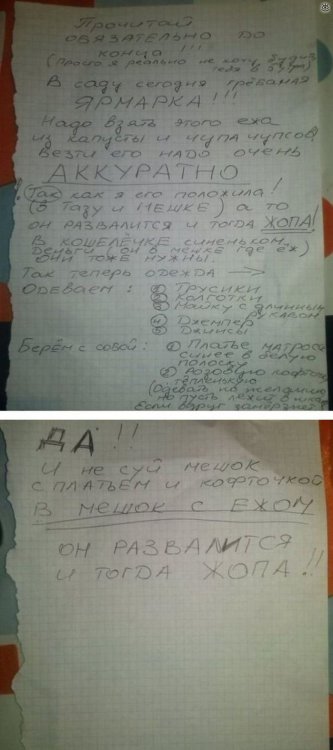 Прочитай
обязательно до
конца !!!
(Просто я реально не хочу будить
тебя в 5 утра)
В саду сегодня грёбаная
ЯРМАРКА!!!
Надо взять этого ежа
из капусты и чупа чупсов,
Везти его надо очень
АККУРАТНО
! (Так как я его положила!
(В тазу и мешке) а то
он развалится и тогда ЖОПА!
В кошелёчке синеньком
деньги (он в мешке где ёж)
они тоже нужны.
Так теперь одежда →
Одеваем: ① Трусики
② Колготки
③ Майку с длинным
рукавом
④ Джемпер
⑤ Джинсы
Берём с собой: ① Платье матроса
синее в белую
полоску
② Розовую кофточку
тёпленькую
(Одевать не желательно
но пусть лежит в шкафу
Если вдруг замёрзнет
ДА!!
И не суй мешок
с платьем и кофточкой
В МЕШОК С ЕЖОМ
он развалится
и тогда ЖОПА!!